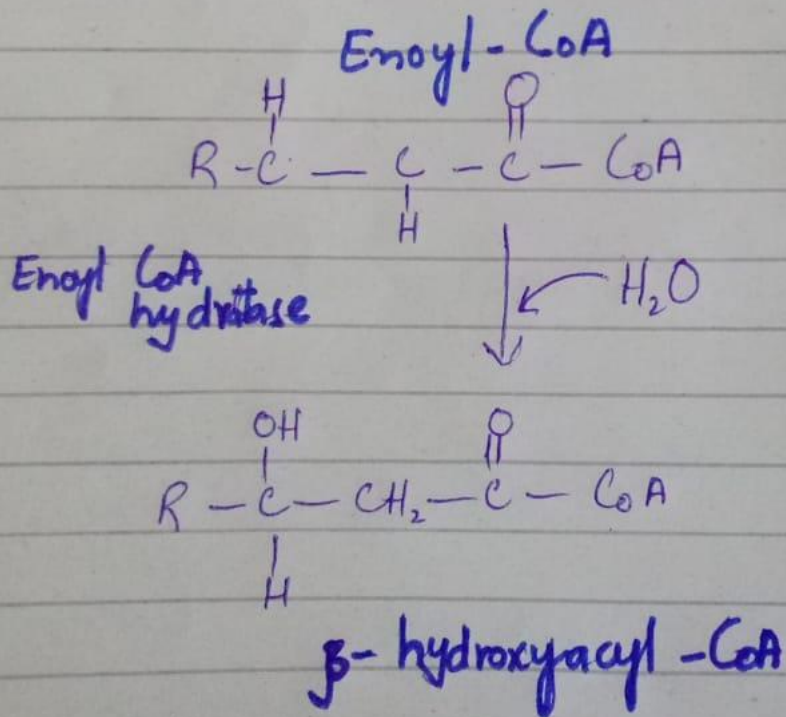 Enoyl-CoA
H O
R-C — C - C - CoA
H
Enoyl CoA
hydratase
H₂O
OH O
R - C - CH₂ - C - CoA
H
β- hydroxyacyl -CoA